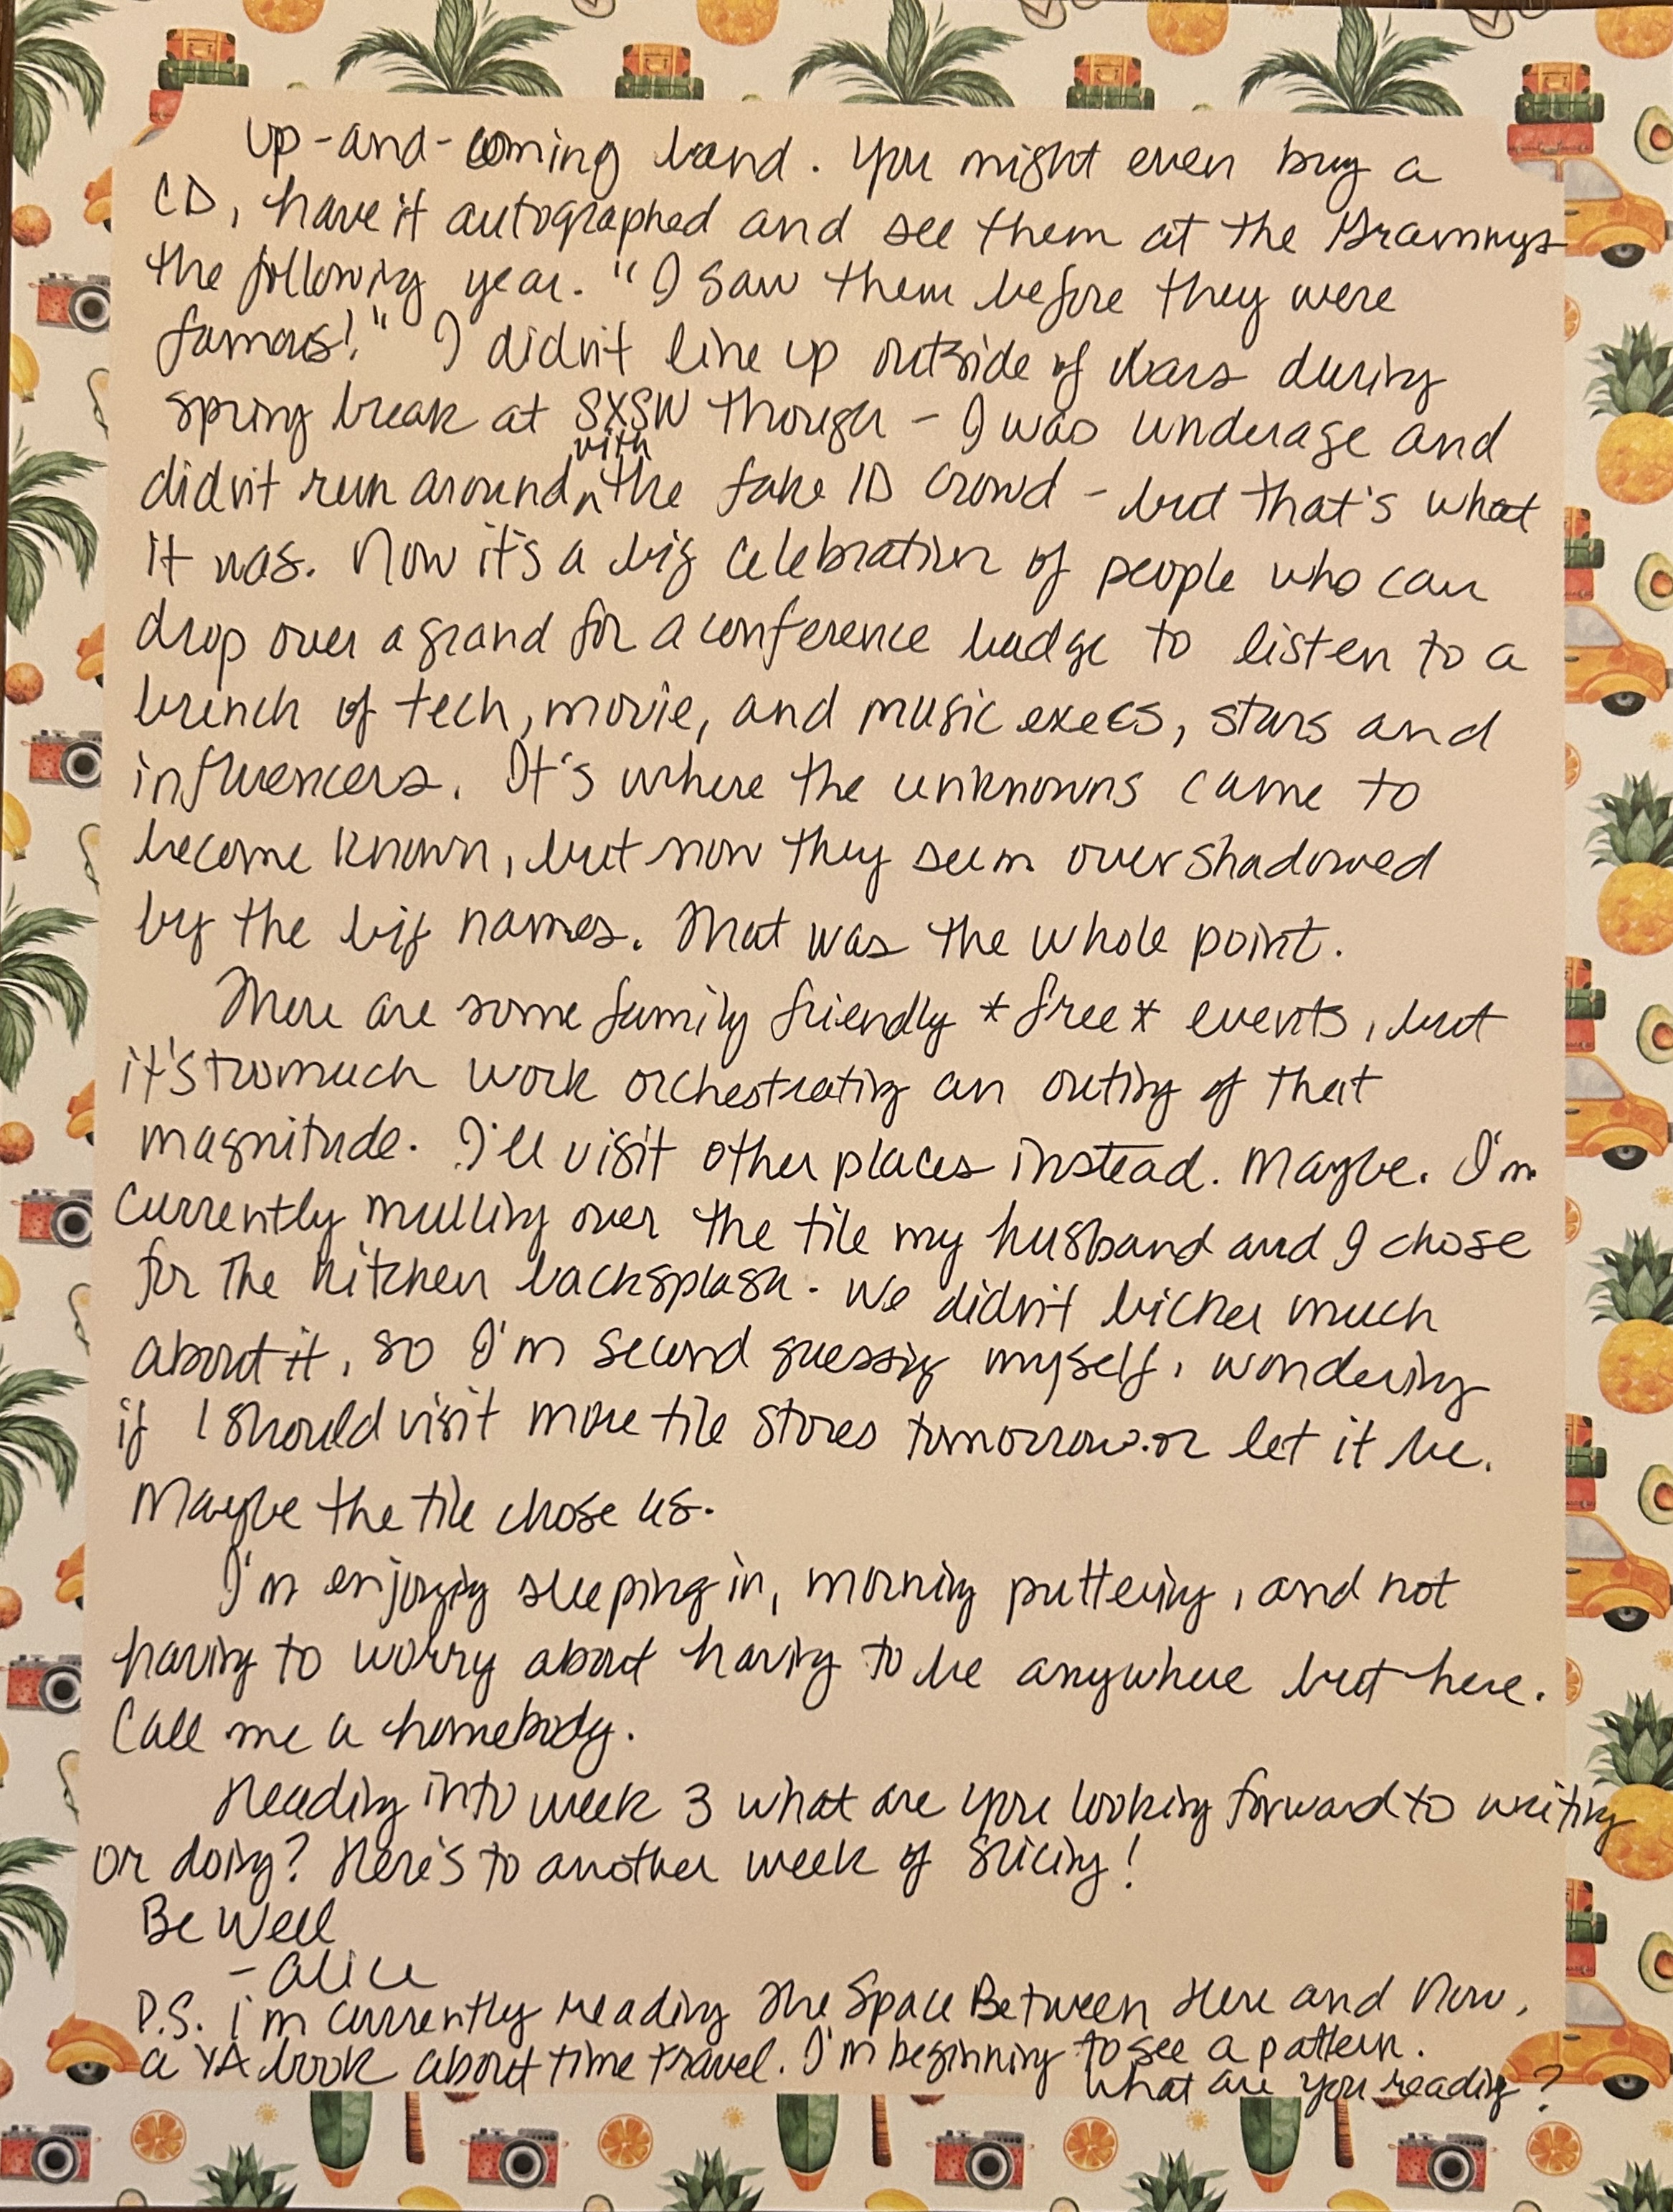 up-and-coming band. You might even buy a
CD, have it autographed and see them at the Grammys
the following year. "I saw them before they were
famous!" I didn't line up outside of bars during
spring break at SXSW though - I was underage and
with
didn't run around ^ the fake ID crowd - but that's what
it was. Now it's a big celebration of people who can
drop over a grand for a conference badge to listen to a
bunch of tech, movie, and music execs, stars and
influencers. It's where the unknowns came to
become known, but now they seem overshadowed
by the big names. That was the whole point.
There are some family friendly *free* events, but
it's too much work orchestrating an outing of that
magnitude. I'll visit other places instead. Maybe. I'm
currently mulling over the tile my husband and I chose
for the kitchen backsplash. We didn't bicker much
about it, so I'm second guessing myself, wondering
if I should visit more tile stores tomorrow or let it be.
Maybe the tile chose us.
I'm enjoying sleeping in, morning puttering, and not
having to worry about having to be anywhere but here.
Call me a homebody.
Heading into week 3 what are you looking forward to writing
or doing? Here's to another week of slicing!
Be Well
- Alice
P.S. I'm currently reading The Space Between Here and Now,
a YA book about time travel. I'm beginning to see a pattern.
What are you reading?